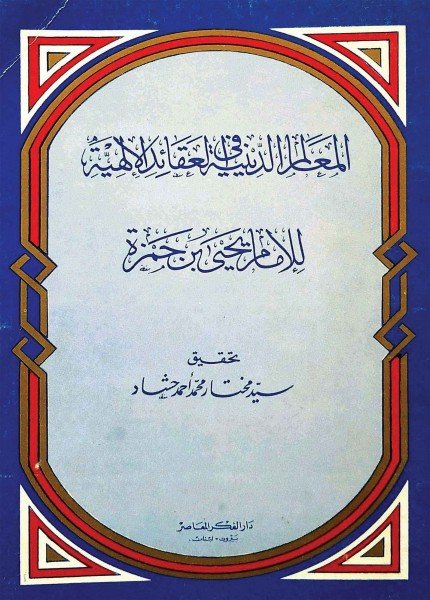 المعالم الدينية في العقائد الإلهية
للإمام يحيى بن حمزة
تحقيق
سيد مختار محمد أحمد حشاد
دار الفكر المعاصر
بيروت - لبنان